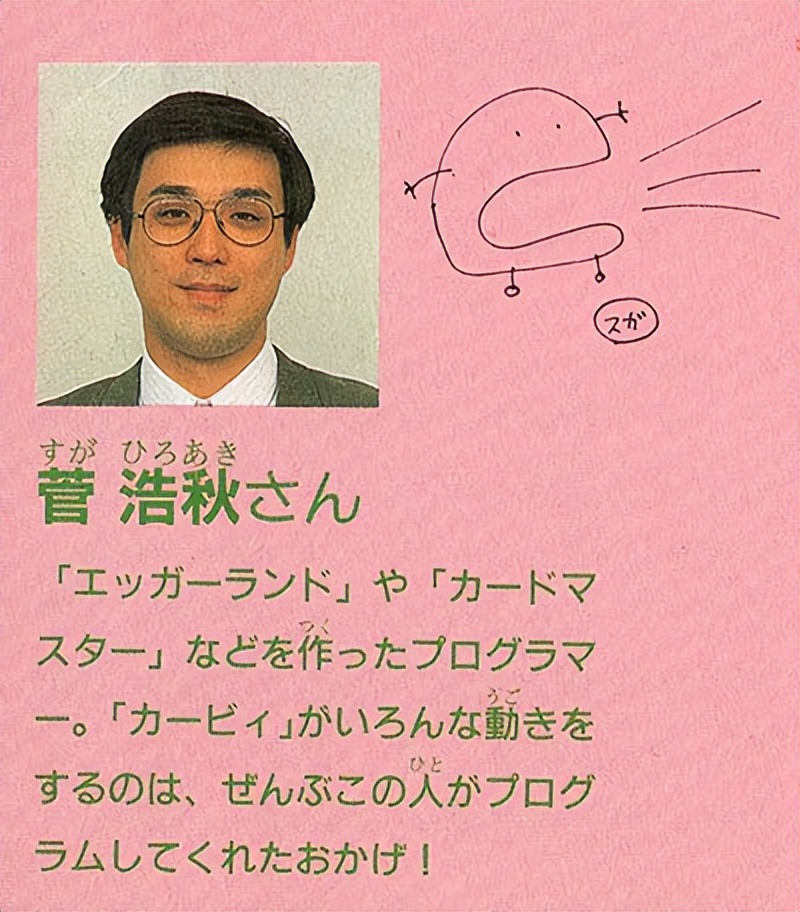 スガ
すが ひろあき
菅 浩秋さん
「エッガーランド」や「カードマ
つく
スター」などを作ったプログラマ
うご
ー。「カービィ」がいろんな動きを
ひと
するのは、ぜんぶこの人がプログ
ラムしてくれたおかげ！